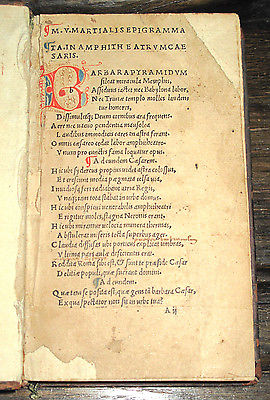 M. V. MARTIALIS EPIGRAMMA
TA IN AMPHITHEATRVM CAE
SARIS.
BARBARA PYRAMIDVM
sileat miracula Memphis,
Assiduus iactet nec Babylona labor,
Nec Triuiae templo molles laudentur
honores,
Dissimuletq; Deum cornibus ara frequens.
Aere nec uacuo pendentia mausolea
Laudibus immodicis cares in astra ferant.
Omnis caesareo cedat labor amphitheatro.
Vnum pro cunctis fama loquatur opus.
Ad eundem Caesarem.
Hic ubi sydereus propius uidet astra colossus,
Et crescunt media pegmata celsa uia,
Inuidiosa feri radiabant atria Regis,
Vnaq; iam tota stabat in urbe domus.
Hic ubi conspicui uenerabilis amphitheatri
Erigitur moles, stagna Neronis erant.
Hic ubi miramur uelocia munera thermas,
Abstulerat miseris tecta superbus ager.
Claudia diffusas ubi porticus explicat umbras,
Vltima pars aulae deficientis erat.
Reddita Roma sibi est, & sunt te praeside Caesar
Delitiae populi, quae fuerant domini.
Ad eundem.
Quae tam seposita est, quae gens tam barbara Caesar,
Ex qua spectator non sit in urbe tua?
A ii